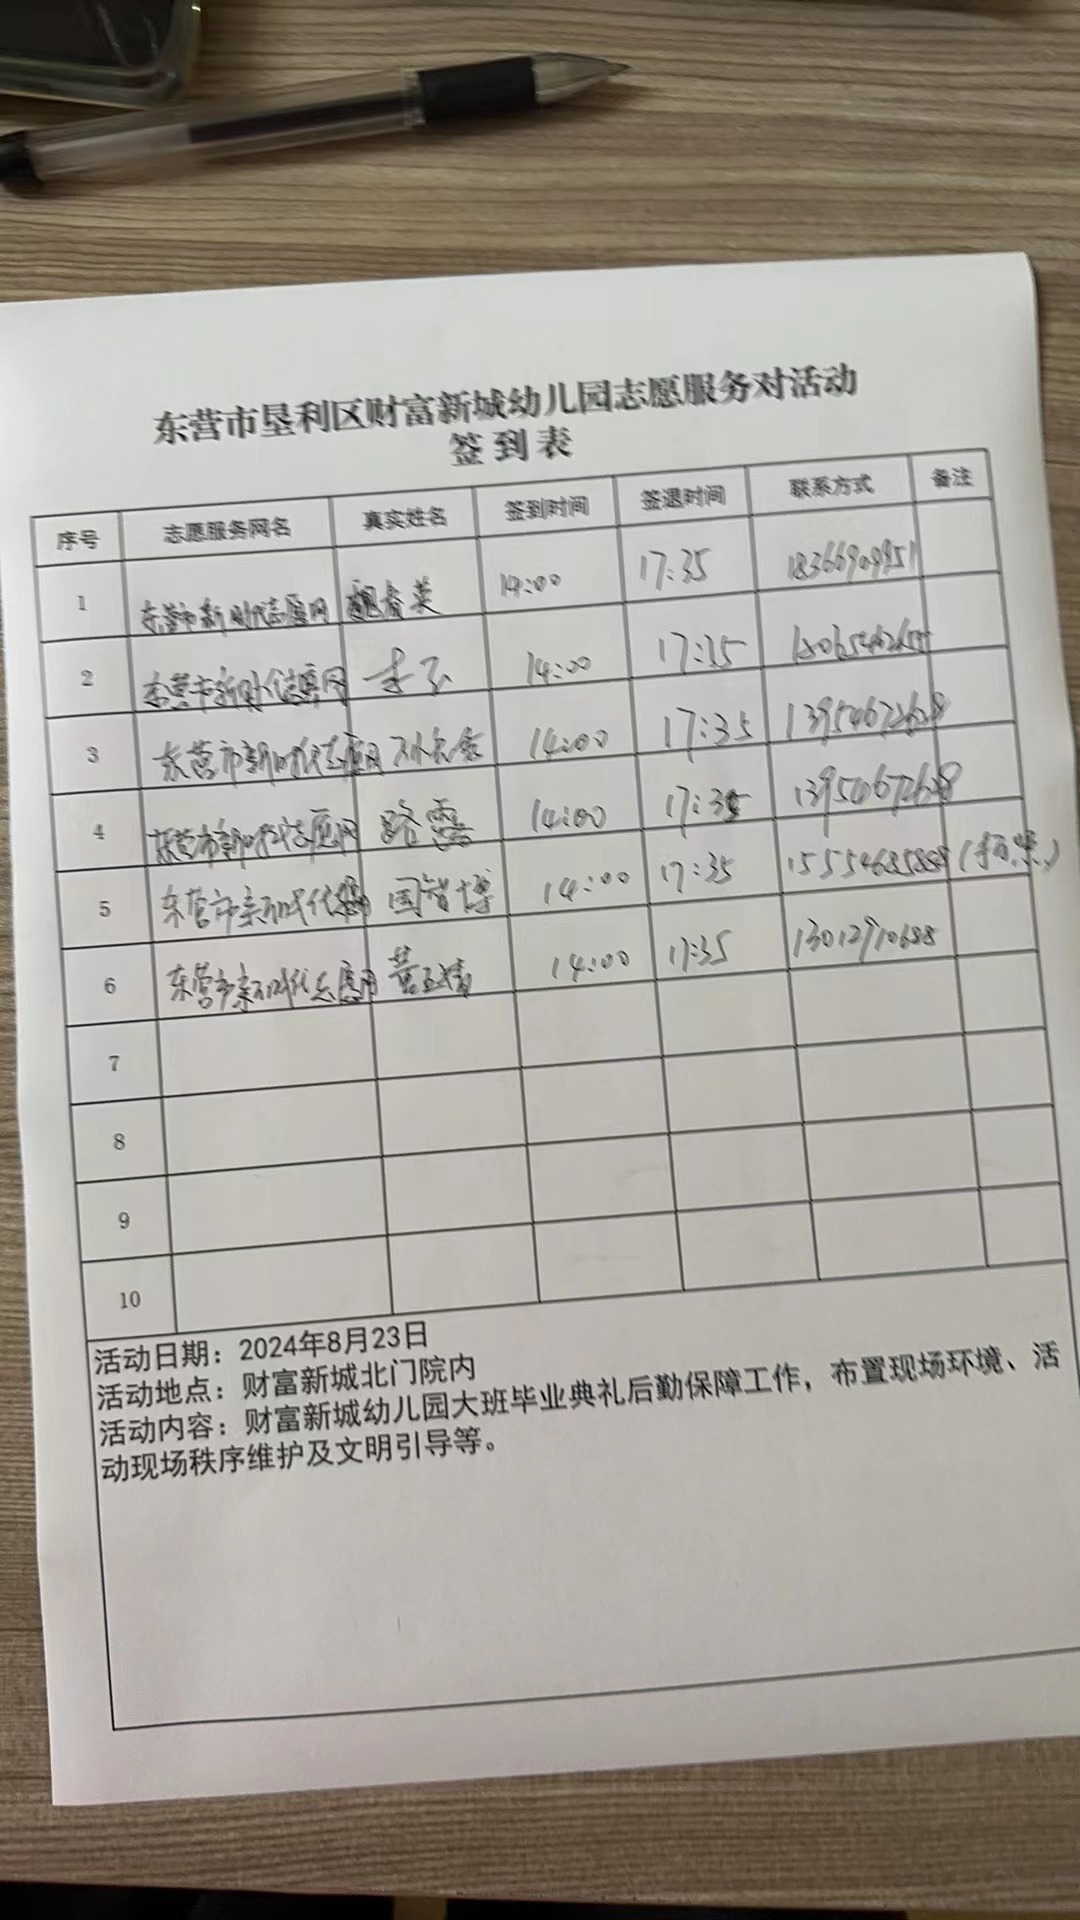 东营市垦利区财富新城幼儿园志愿服务对活动
签到表
序号 志愿服务网名 真实姓名 签到时间 签退时间 联系方式 备注
1 东营市新时代志愿网 魏春英 14:00 17:35 18366909951
2 东营市新时代志愿网 14:00 17:35
3 东营市新时代志愿网 14:00 17:35 13954672628
4 东营市新时代志愿网 路露 14:00 17:35 13954672628
5 东营市新时代志愿网 国智博 14:00 17:35 15554685888
6 东营市新时代志愿网 14:00 17:35 13012910688
7
8
9
10
活动日期：2024年8月23日
活动地点：财富新城北门院内
活动内容：财富新城幼儿园大班毕业典礼后勤保障工作，布置现场环境、活
动现场秩序维护及文明引导等。